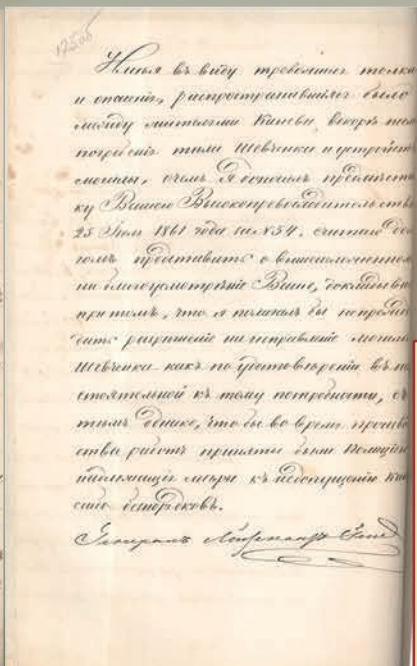 125об
Имѣя въ виду тревожные толки
и опасенія, распространившіяся было
между жителями Кіева, вскорѣ после
погребенія тѣла Шевченки и устройст
могилы, о чемъ я доносилъ предмѣстни
ку Вашего Высокопревосходительства
25 Іюля 1861 года за №54, считаю дол
гомъ представить о вышеизложенномъ
на благоусмотрѣніе Ваше, докладывая
при томъ, что я полагалъ бы
дать разрѣшеніе на исправленіе могилы
Шевченки какъ по удостовѣреніи въ на
стоятельной къ тому потребности, съ
тѣмъ однако, чтобы во время производ
ства работъ приняты были Полиціею
надлежащія мѣры къ недопущенію
безпорядковъ.
Генералъ Лейтенантъ